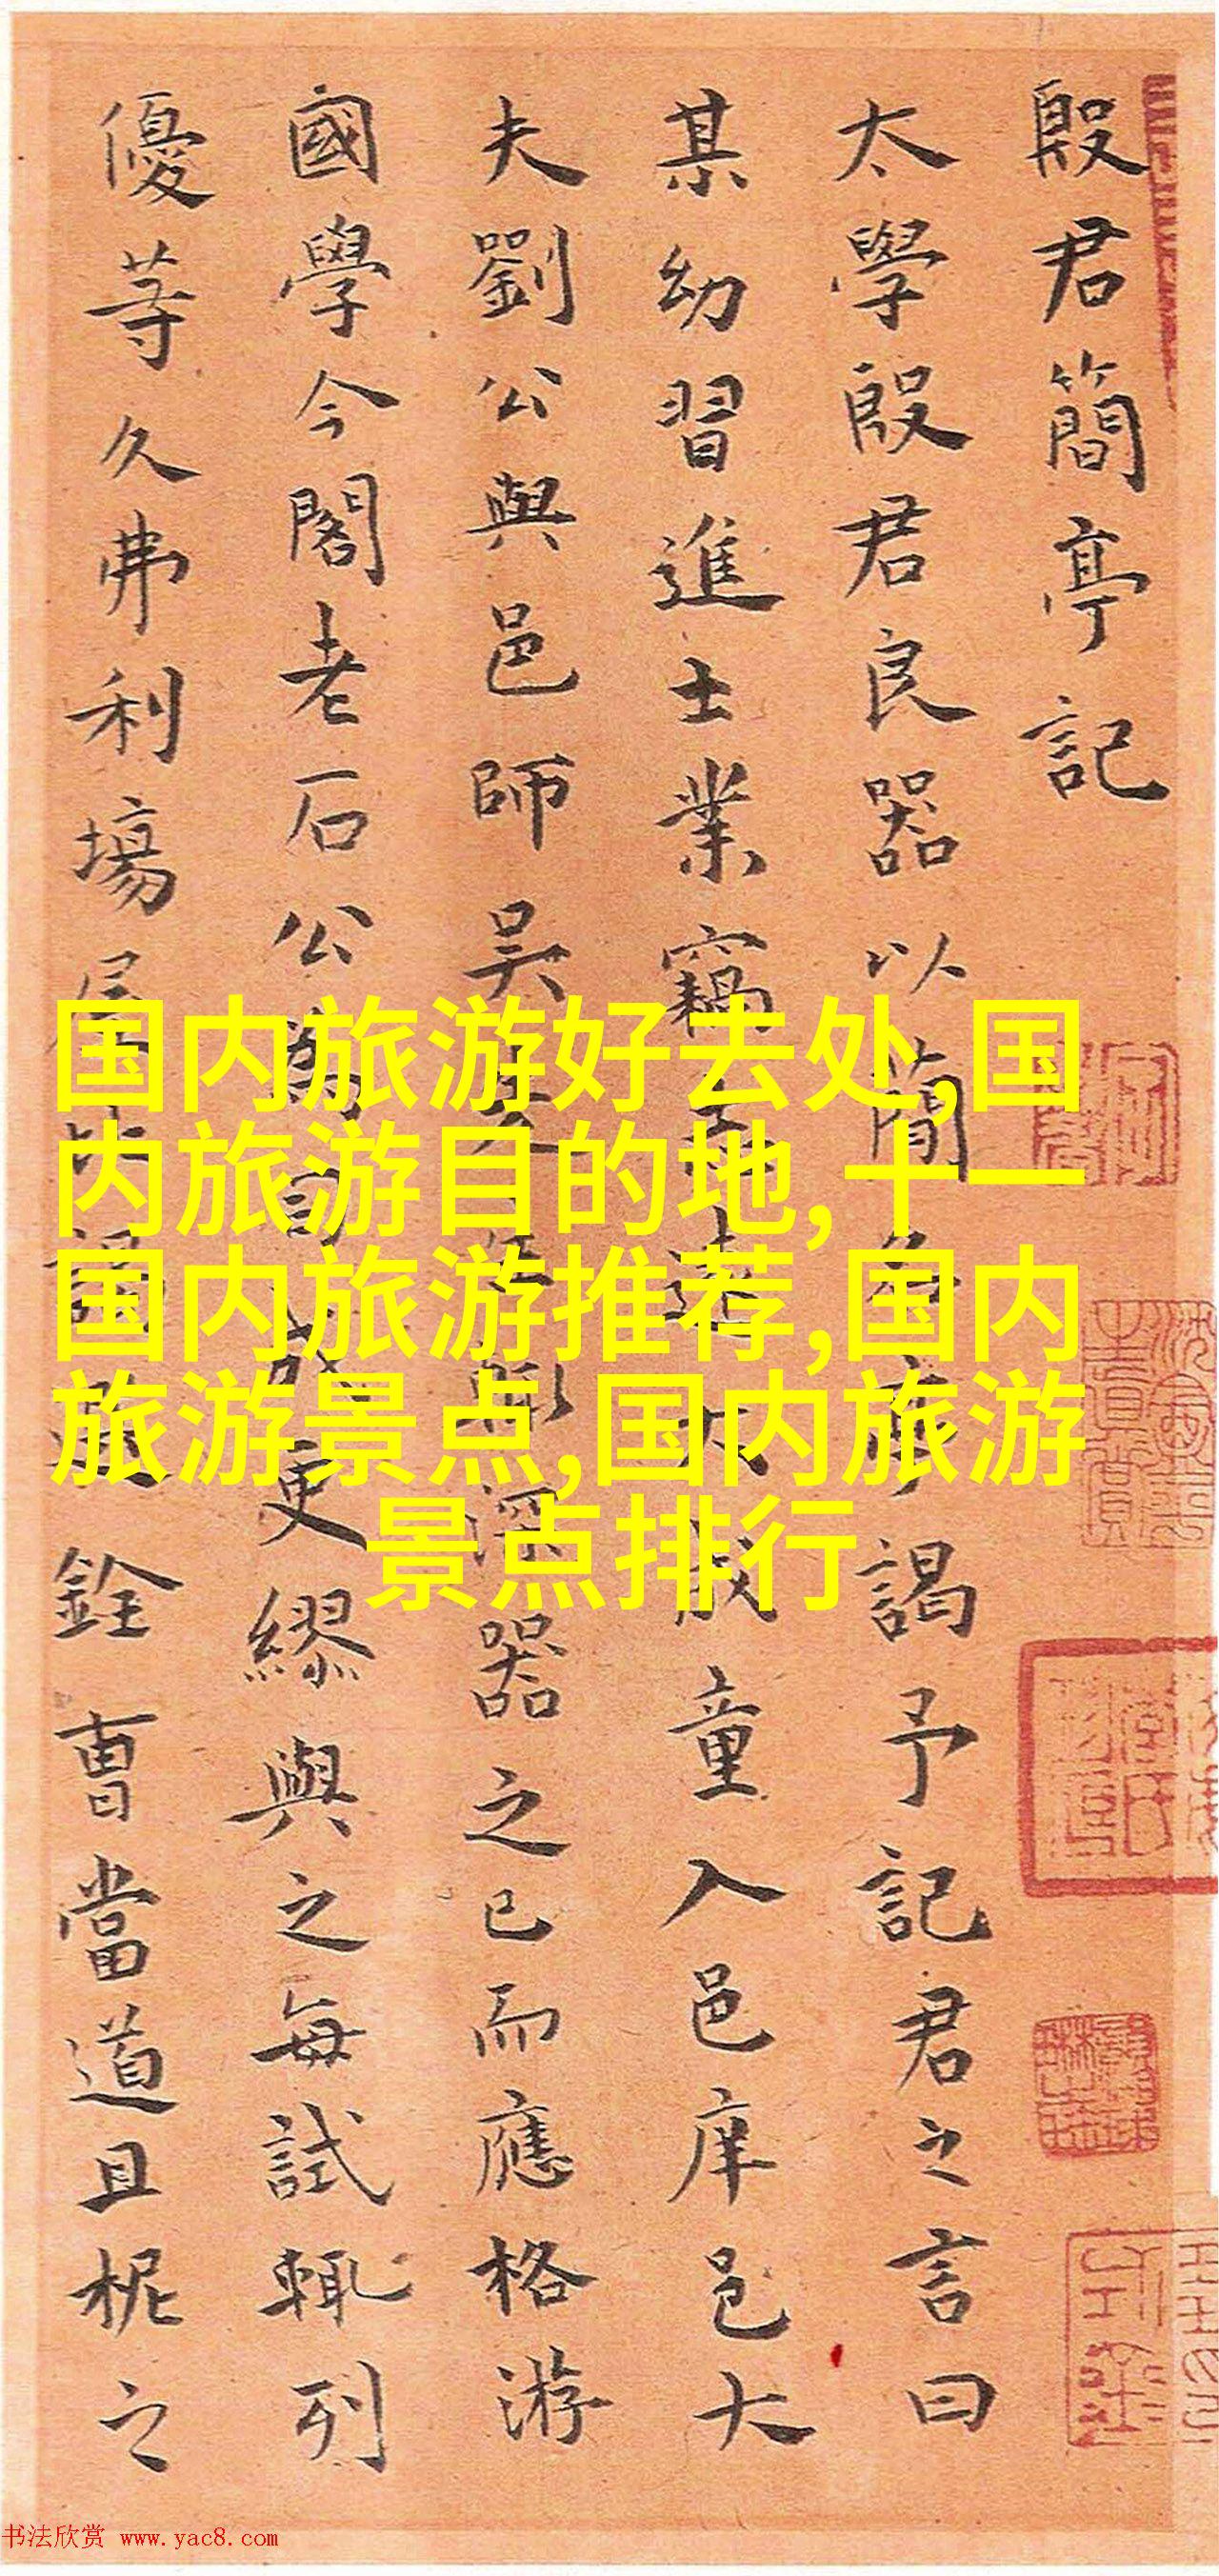 殷君簡亭記
太學殷君良器以簡名亭謁予記君之言曰
某幼習進士業竊大成童入邑庠邑大
夫劉公與邑師吳深器之已而應格游
國學今閣老石公為司成更繆與之每試輒列
優等久弗利場屋銓曹當道且柅之
国内旅游好去处,国
内旅游目的地,十一
国内旅游推荐,国内
旅游景点,国内旅游
景点排行
书法欣赏 www.yac8.com